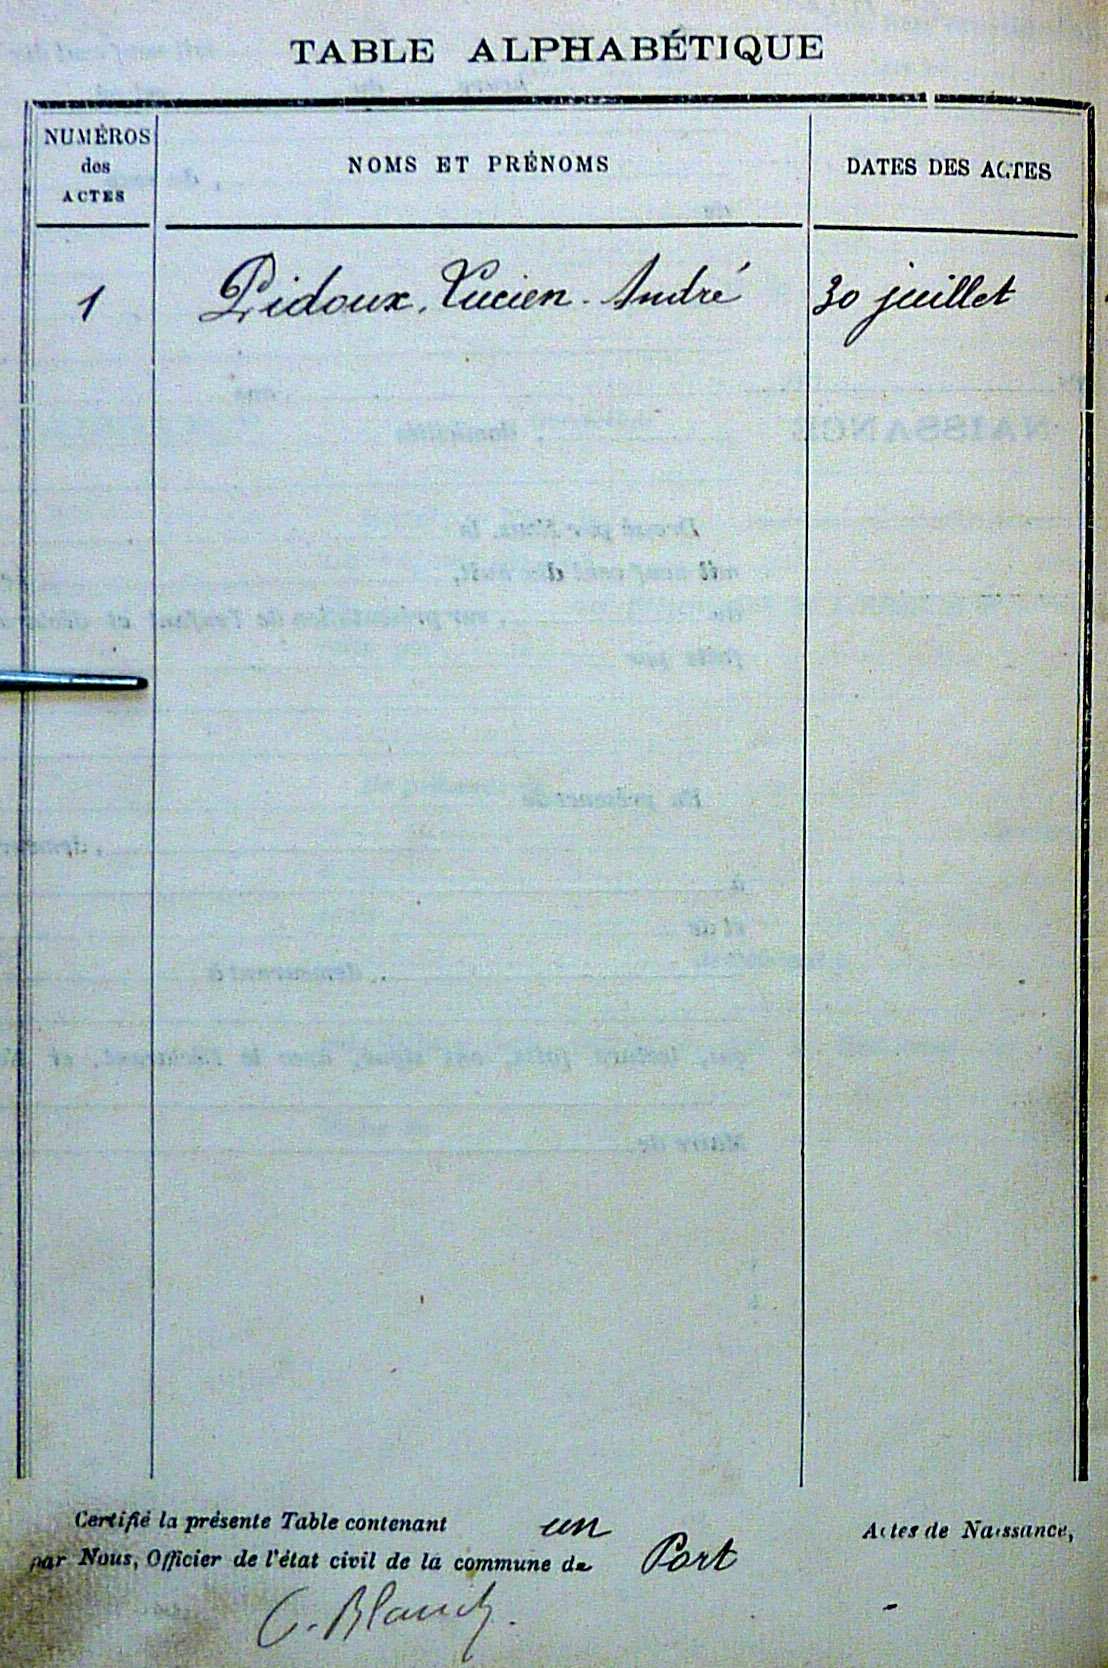 TABLE ALPHABÉTIQUE
NUMÉROS
des
ACTES
NOMS ET PRÉNOMS
DATES DES ACTES
1 Pidoux, Lucien-André 30 juillet
Certifié la présente Table contenant un Actes de Naissance,
par Nous, Officier de l'état civil de la commune de Port